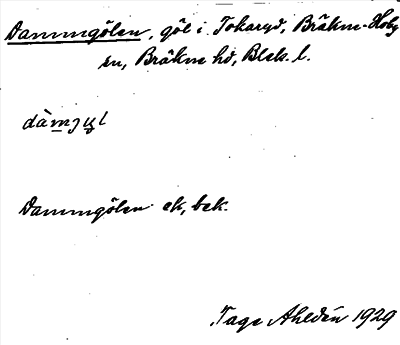 Dammgölen, göl i Tokaryd, Bräkne-Hoby
sn, Bräkne hd, Blek. l.
dàmjyl
Dammgölen ek, bek.
Tage Ahldén 1929